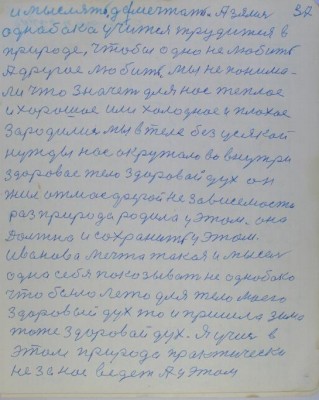 и мыслять, до мечтать. А земля 37
однобока учится трудится в
природе, чтобы одно не любить
а другое любить. мы не понима-
ли что значет для нас теплое
и хорошое или холодное и плохое
Зародились мы в теле без усякой
нужды нас окружало во внутри
здоровае тело здоровай дух он
жил от
не зависемость
раз природа родила у этом. она
должна и сохранить у этом.
Иванова мечта такая и мысель
одна себя показывать не однобоко
что было лето для тело моего
здоровый дух то и пришла зима
тоже здоровай дух. Я учусь в
этом природа практически
не за нос ведет А у этом